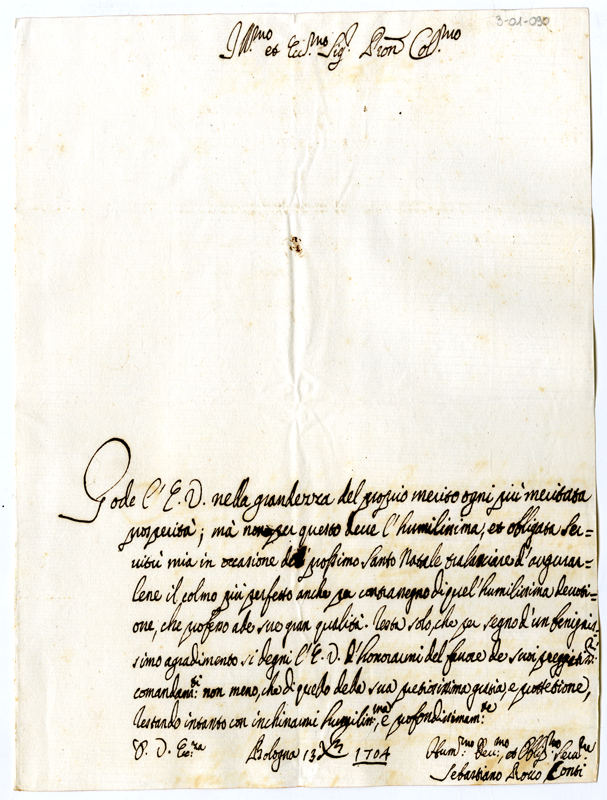 3-01-090
Ill.mo et Ecc.mo Sig.r Pron Col.mo
Gode l'E. V. nella grandezza del proprio merito ogni più meritata
prosperità; mà non per questo deue l'humilissima, et obligata Ser=
uitù mia in occasione del prossimo Santo Natale tralasciare d'augurar=
lene il colmo più perfetto anche per contrasegno di quel'humilissima deuoti=
one, che professo alle sue gran qualità. Resta solo, che per segno d'un benignis
simo agradimento si degni l'E. V. d'honorarmi del fauore de suoi preggiati.mi
comandam.ti non meno, che di quello della sua pretiosissima gratia, e protettione,
restando intanto con inchinarmi humilissim.a, e profondissimam.te
D. V. Ecc.za Bologna 13 Xbre 1704 Hum.mo Deu.mo, et Oblig.mo Seru.re
Sebastiano Conti